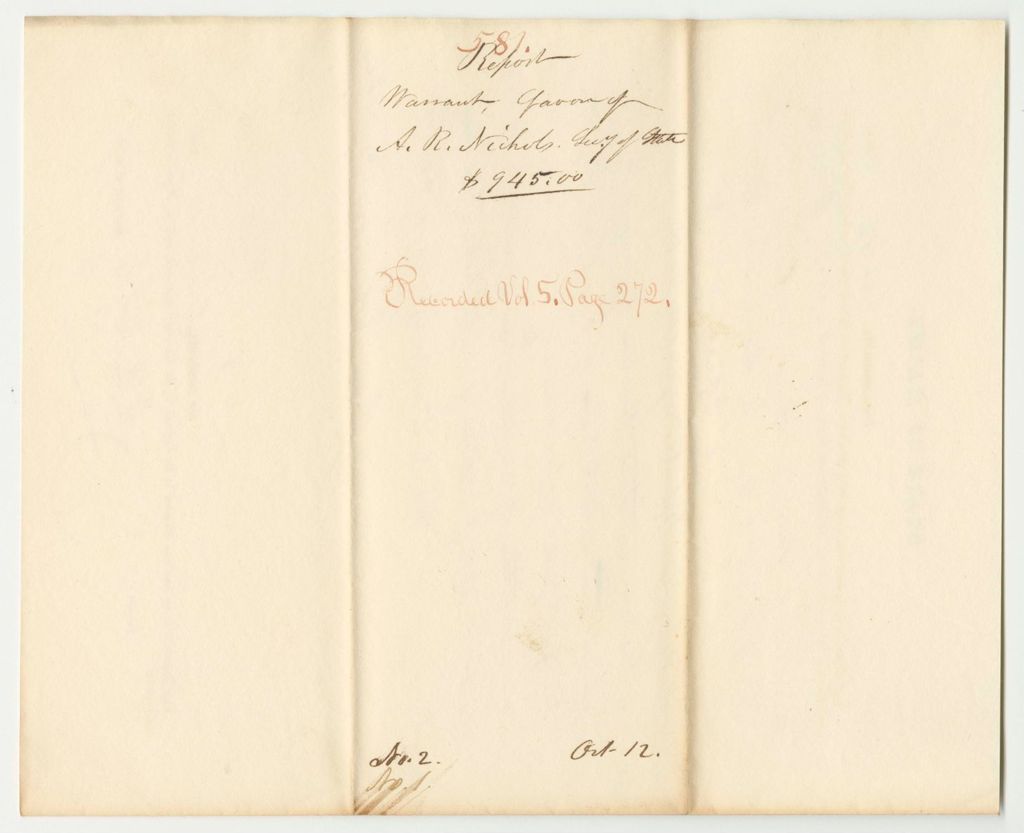 581.
Report
Warrant, favor of
A. R. Nichols. Secy of State
$945.00
Recorded Vol. 5. Page 272.
No. 2. Oct 12.
No. 1